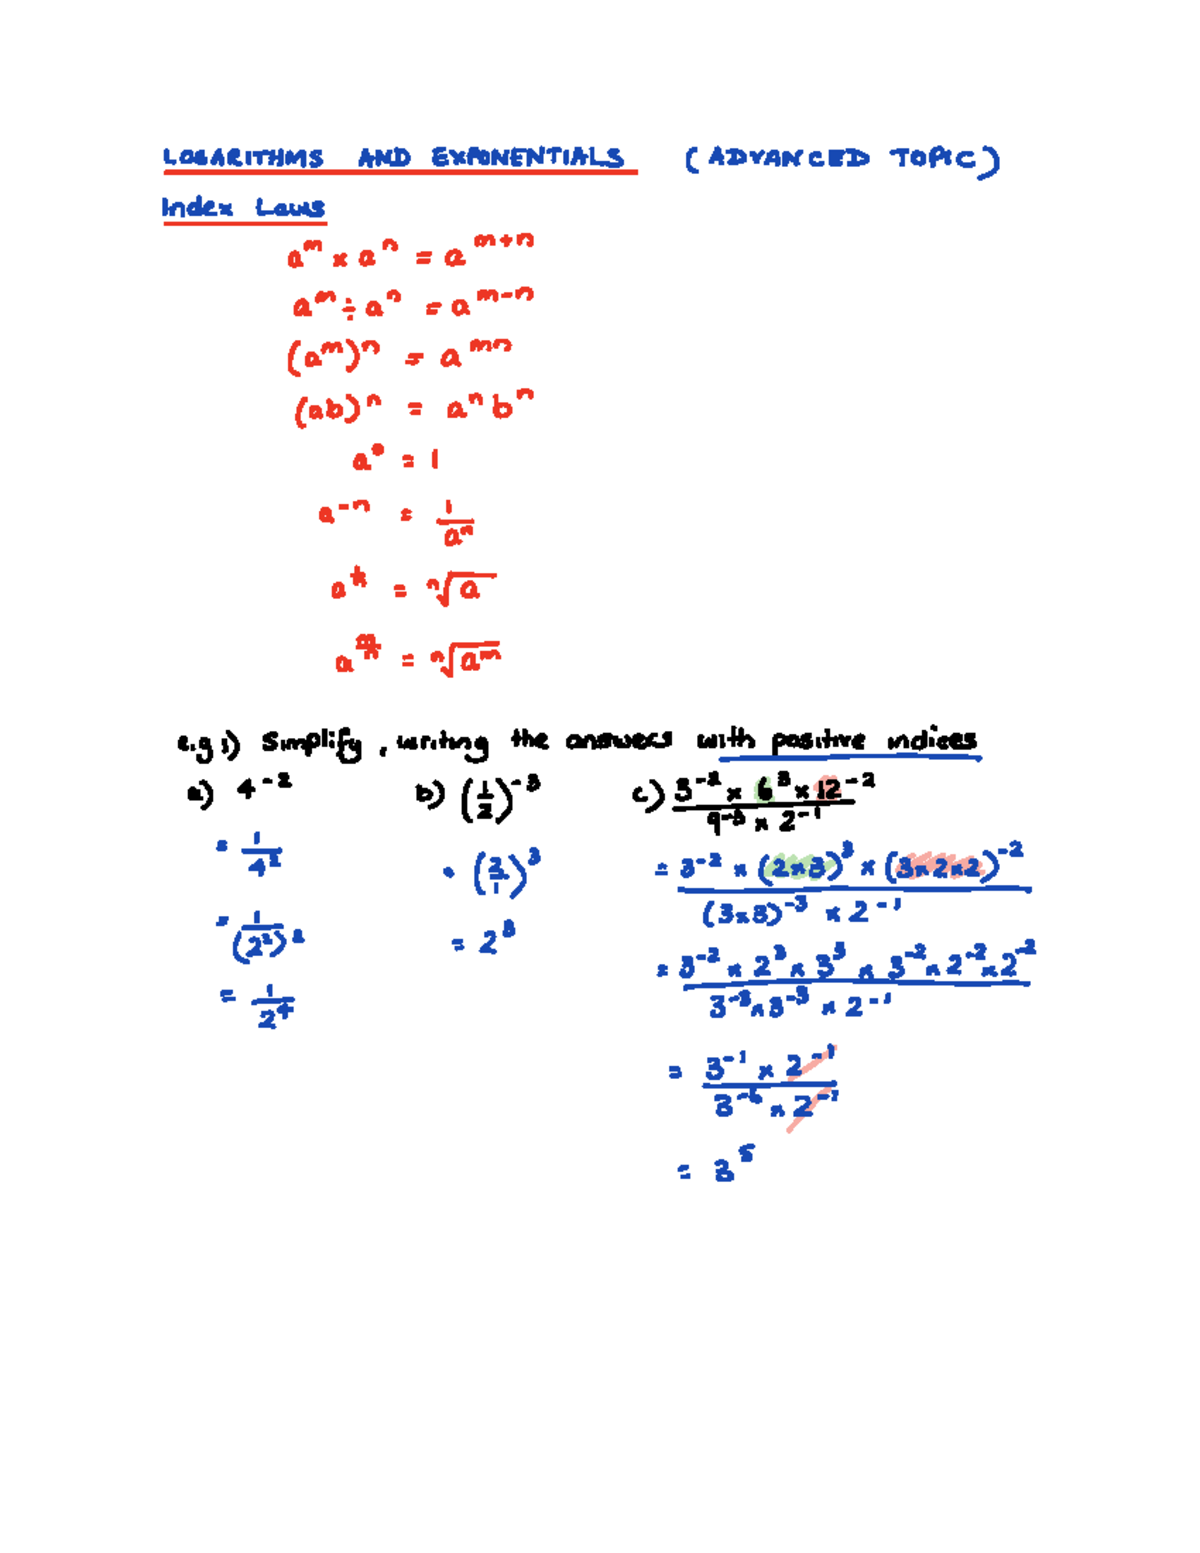 LOGARITHMS AND EXPONENTIALS (ADVANCED TOPIC)
Index Laws
a^m × a^n = a^(m+n)
a^m ÷ a^n = a^(m-n)
(a^m)^n = a^(mn)
(ab)^n = a^n b^n
a^0 = 1
a^(-n) = 1/a^n
a^(1/n) = ⁿ√a
a^(m/n) = ⁿ√(a^m)
e.g 1) Simplify, writing the answers with positive indices
a) 4^(-2)
= 1/4^2
= 1/(2^2)^2
= 1/2^4
b) (1/2)^(-3)
= (2/1)^3
= 2^3
c) (3^(-2) × 6^3 × 12^(-2))/(9^(-3) × 2^(-1))
= (3^(-2) × (2×3)^3 × (3×2×2)^(-2))/((3×3)^(-3) × 2^(-1))
= (3^(-2) × 2^3 × 3^3 × 3^(-2) × 2^(-2) × 2^(-2))/(3^(-3) × 3^(-3) × 2^(-1))
= (3^(-1) × 2^(-1))/(3^(-6) × 2^(-1))
= 3^5